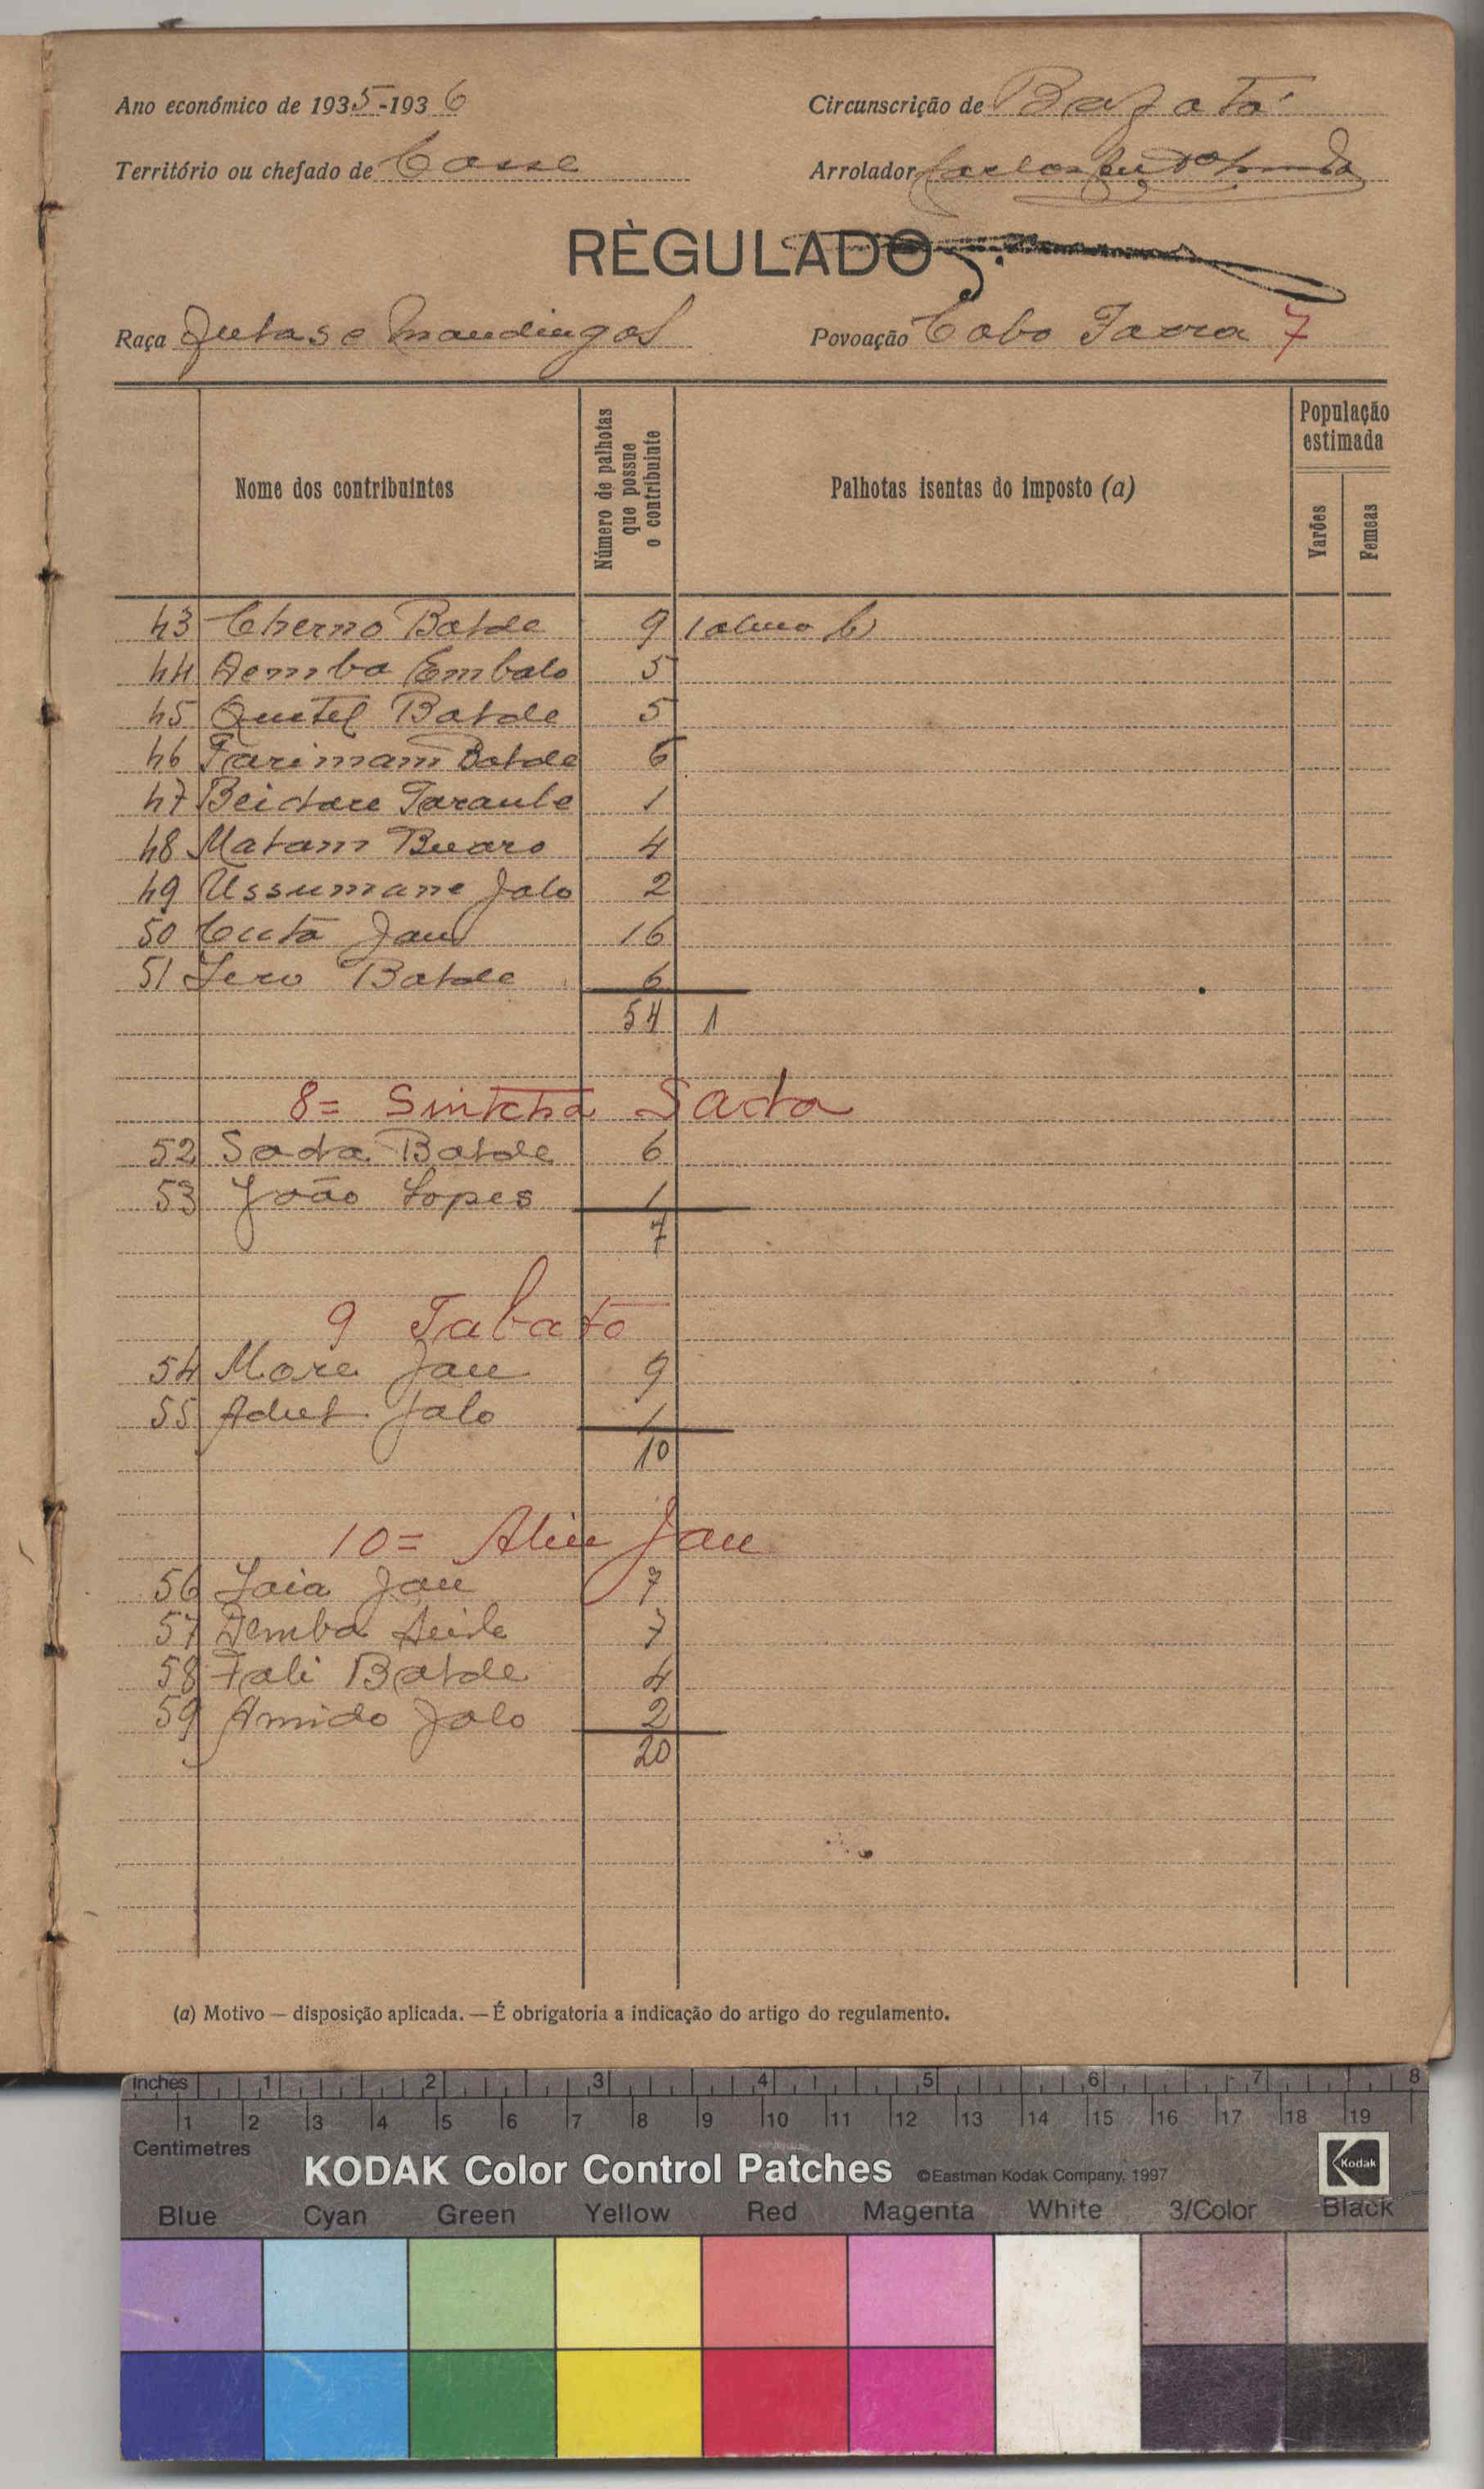 Ano económico de 1935-1936
Circunscrição de Bafatá
Território ou chefado de Cosse
Arrolador
RÈGULADO
Raça Fulas e Mandingas
Povoação Cabo Jaora 7
Nome dos contribuintes
Número de palhotas que possue o contribuinte
Palhotas isentas do imposto (a)
População estimada
Varões
Femeas
43 Cherno Batde 9 1 aluno b)
44 Demba Embalo 5
45 Quitel Batde 5
46 Farimam Batde 6
47 Beidare Taraule 1
48 Matam Buaro 4
49 Ussumane Jalo 2
50 Cuta Jau 16
51 Iero Batde 6
54 1
8= Sintcha Sada
52 Sada Batde 6
53 João Lopes 1
7
9 Tabato
54 More Jau 9
55 Adul Jalo 1
10
10= Aliu Jau
56 Laia Jau 7
57 Demba Seide 7
58 Fali Batde 4
59 Amido Jalo 2
20
(a) Motivo — disposição aplicada. — É obrigatoria a indicação do artigo do regulamento.
inches 1 2 3 4 5 6 7 8
1 2 3 4 5 6 7 8 9 10 11 12 13 14 15 16 17 18 19
Centimetres
KODAK Color Control Patches ©Eastman Kodak Company, 1997 Kodak
Blue Cyan Green Yellow Red Magenta White 3/Color Black